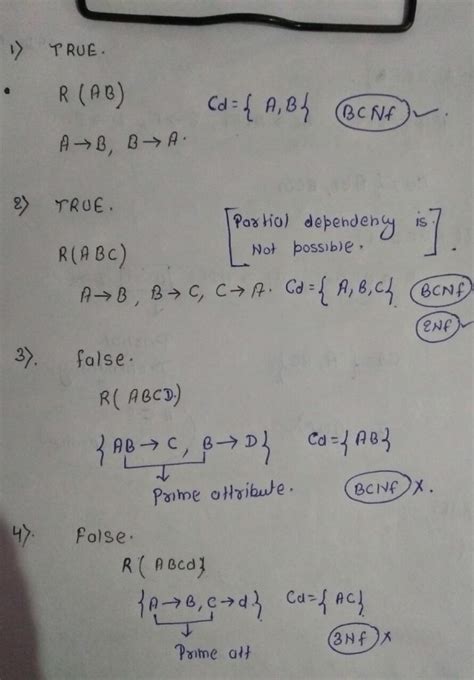 1) TRUE.
R (AB) Cd = { A, B } BCNf ✓.
A → B, B → A.
2) TRUE. [Partial dependency is Not possible.]
R(ABC)
A → B, B → C, C → A. Cd = { A, B, C } BCNf
2Nf ✓
3). false.
R( ABCD)
{ AB → C, B → D } Cd = { AB }
Prime attribute. BCNf X.
4). False.
R( ABCd)
{ A → B, C → d } Cd = { AC }
3Nf X
Prime att